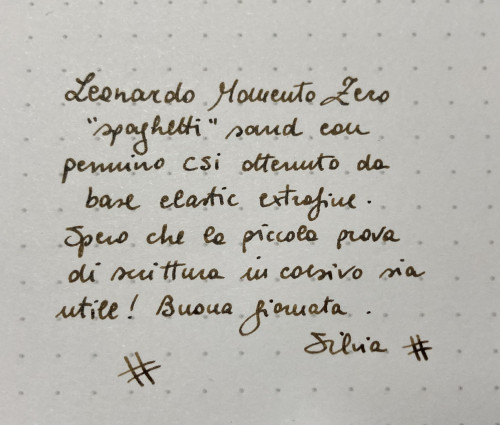 Leonardo Momento Zero
"spaghetti" sand con
pennino CSI ottenuto da
base elastic extrafine.
Spero che la piccola prova
di scrittura in corsivo sia
utile! Buona giornata.
Silvia #
#